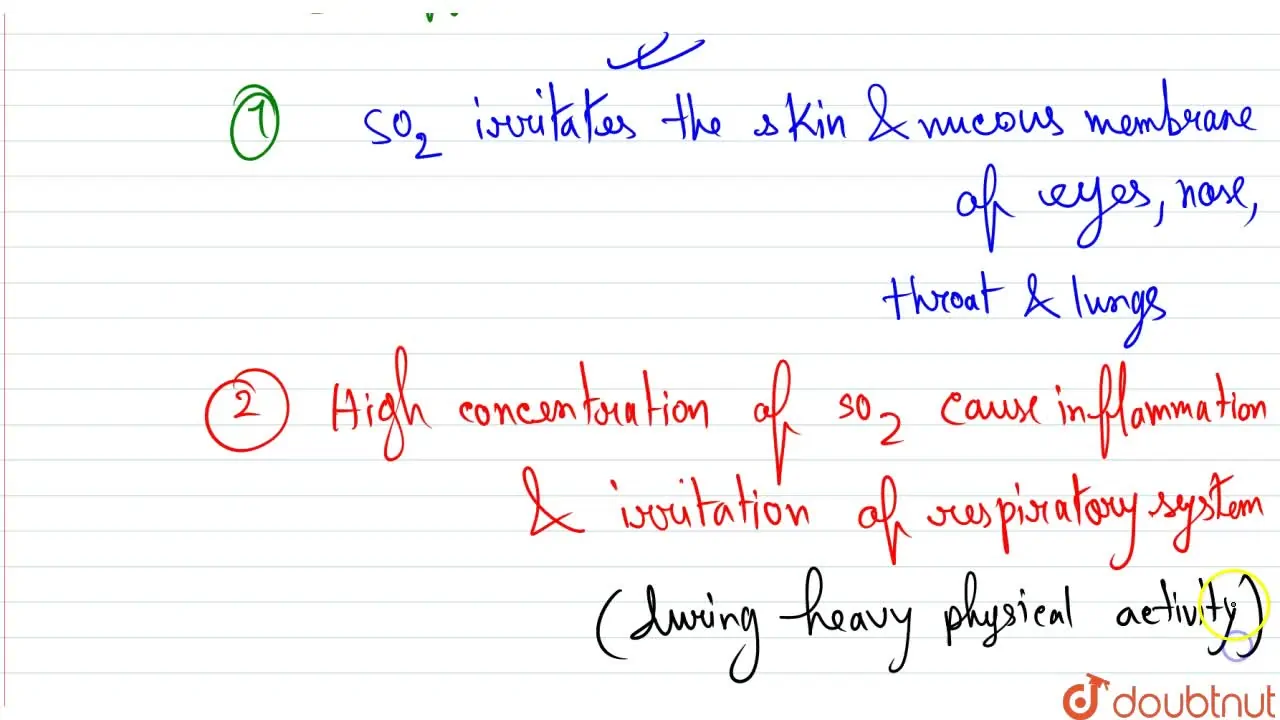 1 SO2 irritates the skin & nucous membrane
of eyes, nose,
throat & lungs
2 High concentration of SO2 cause inflammation
& irritation of respiratory system
(during heavy physical activity)
doubtnut